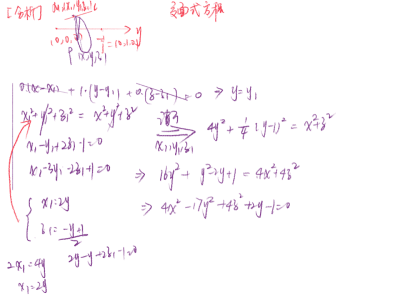 [分析]
y
P
0(x-x₁) + 1·(y-y₁) + 0(z-z₁) = 0 ⇒ y=y₁
x₁²+y₁²+z₁² = x²+y²+z²
x₁,y₁,z₁
4y²+\frac{1}{4}(y-1)² = x²+z²
x₁-y₁+2z₁-1=0
x₁-3y₁-2z₁+1=0
⇒ 16y²+y²-2y+1 = 4x²+4z²
{ x₁=2y
z₁=\frac{-y+1}{2}
⇒ 4x²-17y²+4z²+2y-1=0
2x₁=4y
2y-y+2z₁-1=0
x₁=2y